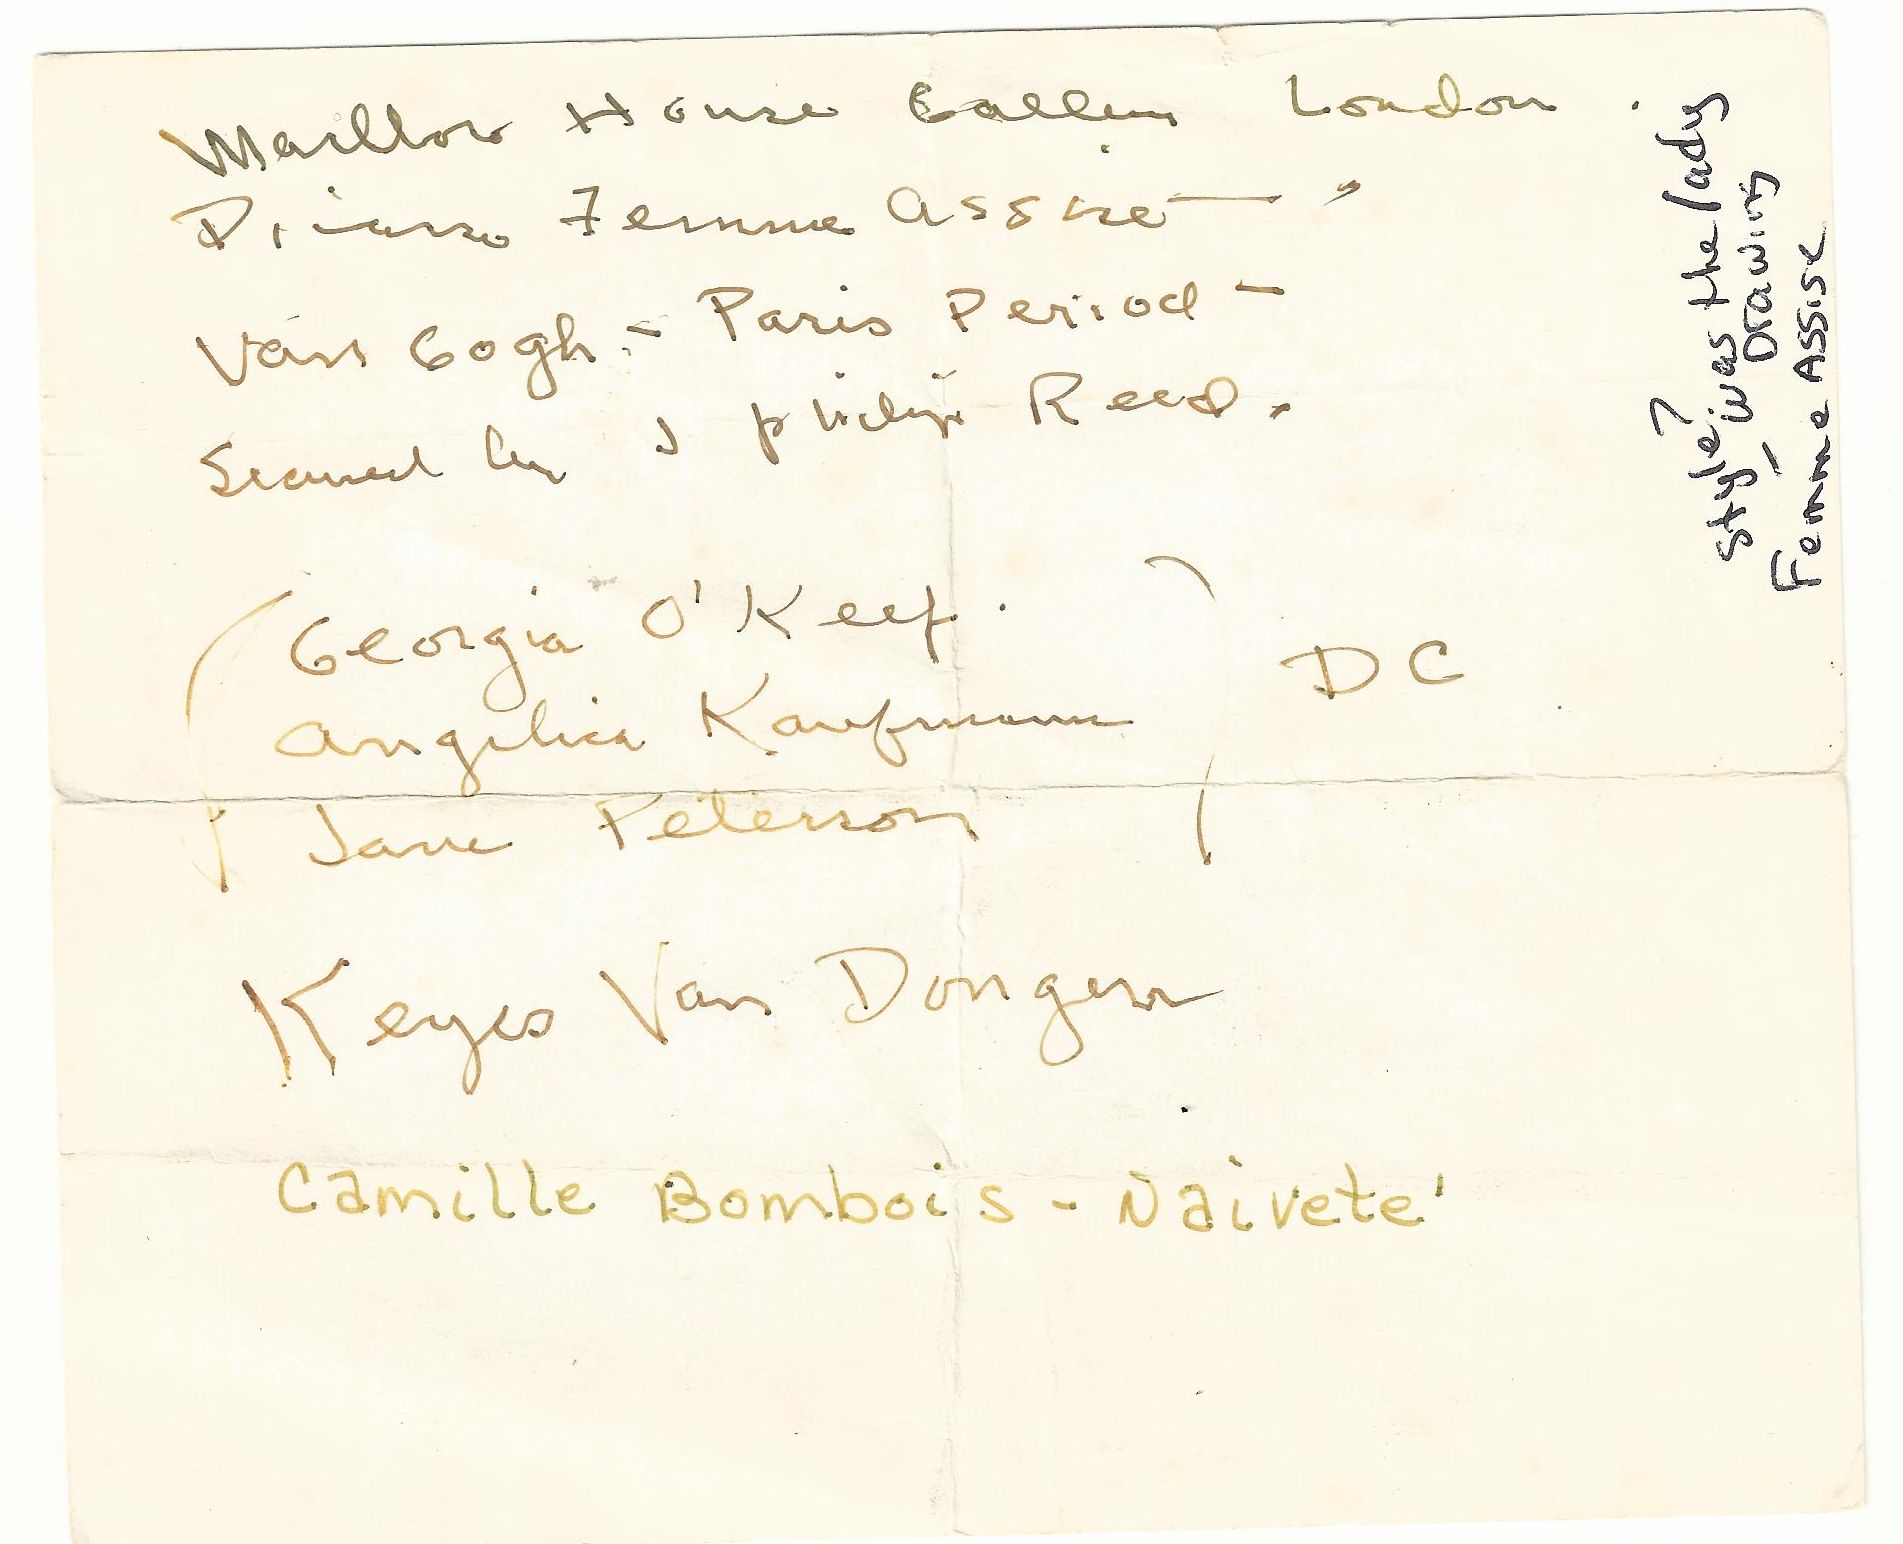 Marllow House Gallery London .
Picasso Femme Assise — "
Van Gogh - Paris Period -
Scanned by J philip Reed .
Georgia O'Keef .
Angelica Kaufmann
DC
Jane Peterson
Keyes Van Dongen
Camille Bombois - Naivete'
style?
was the lady
- Drawing
Femme Assise